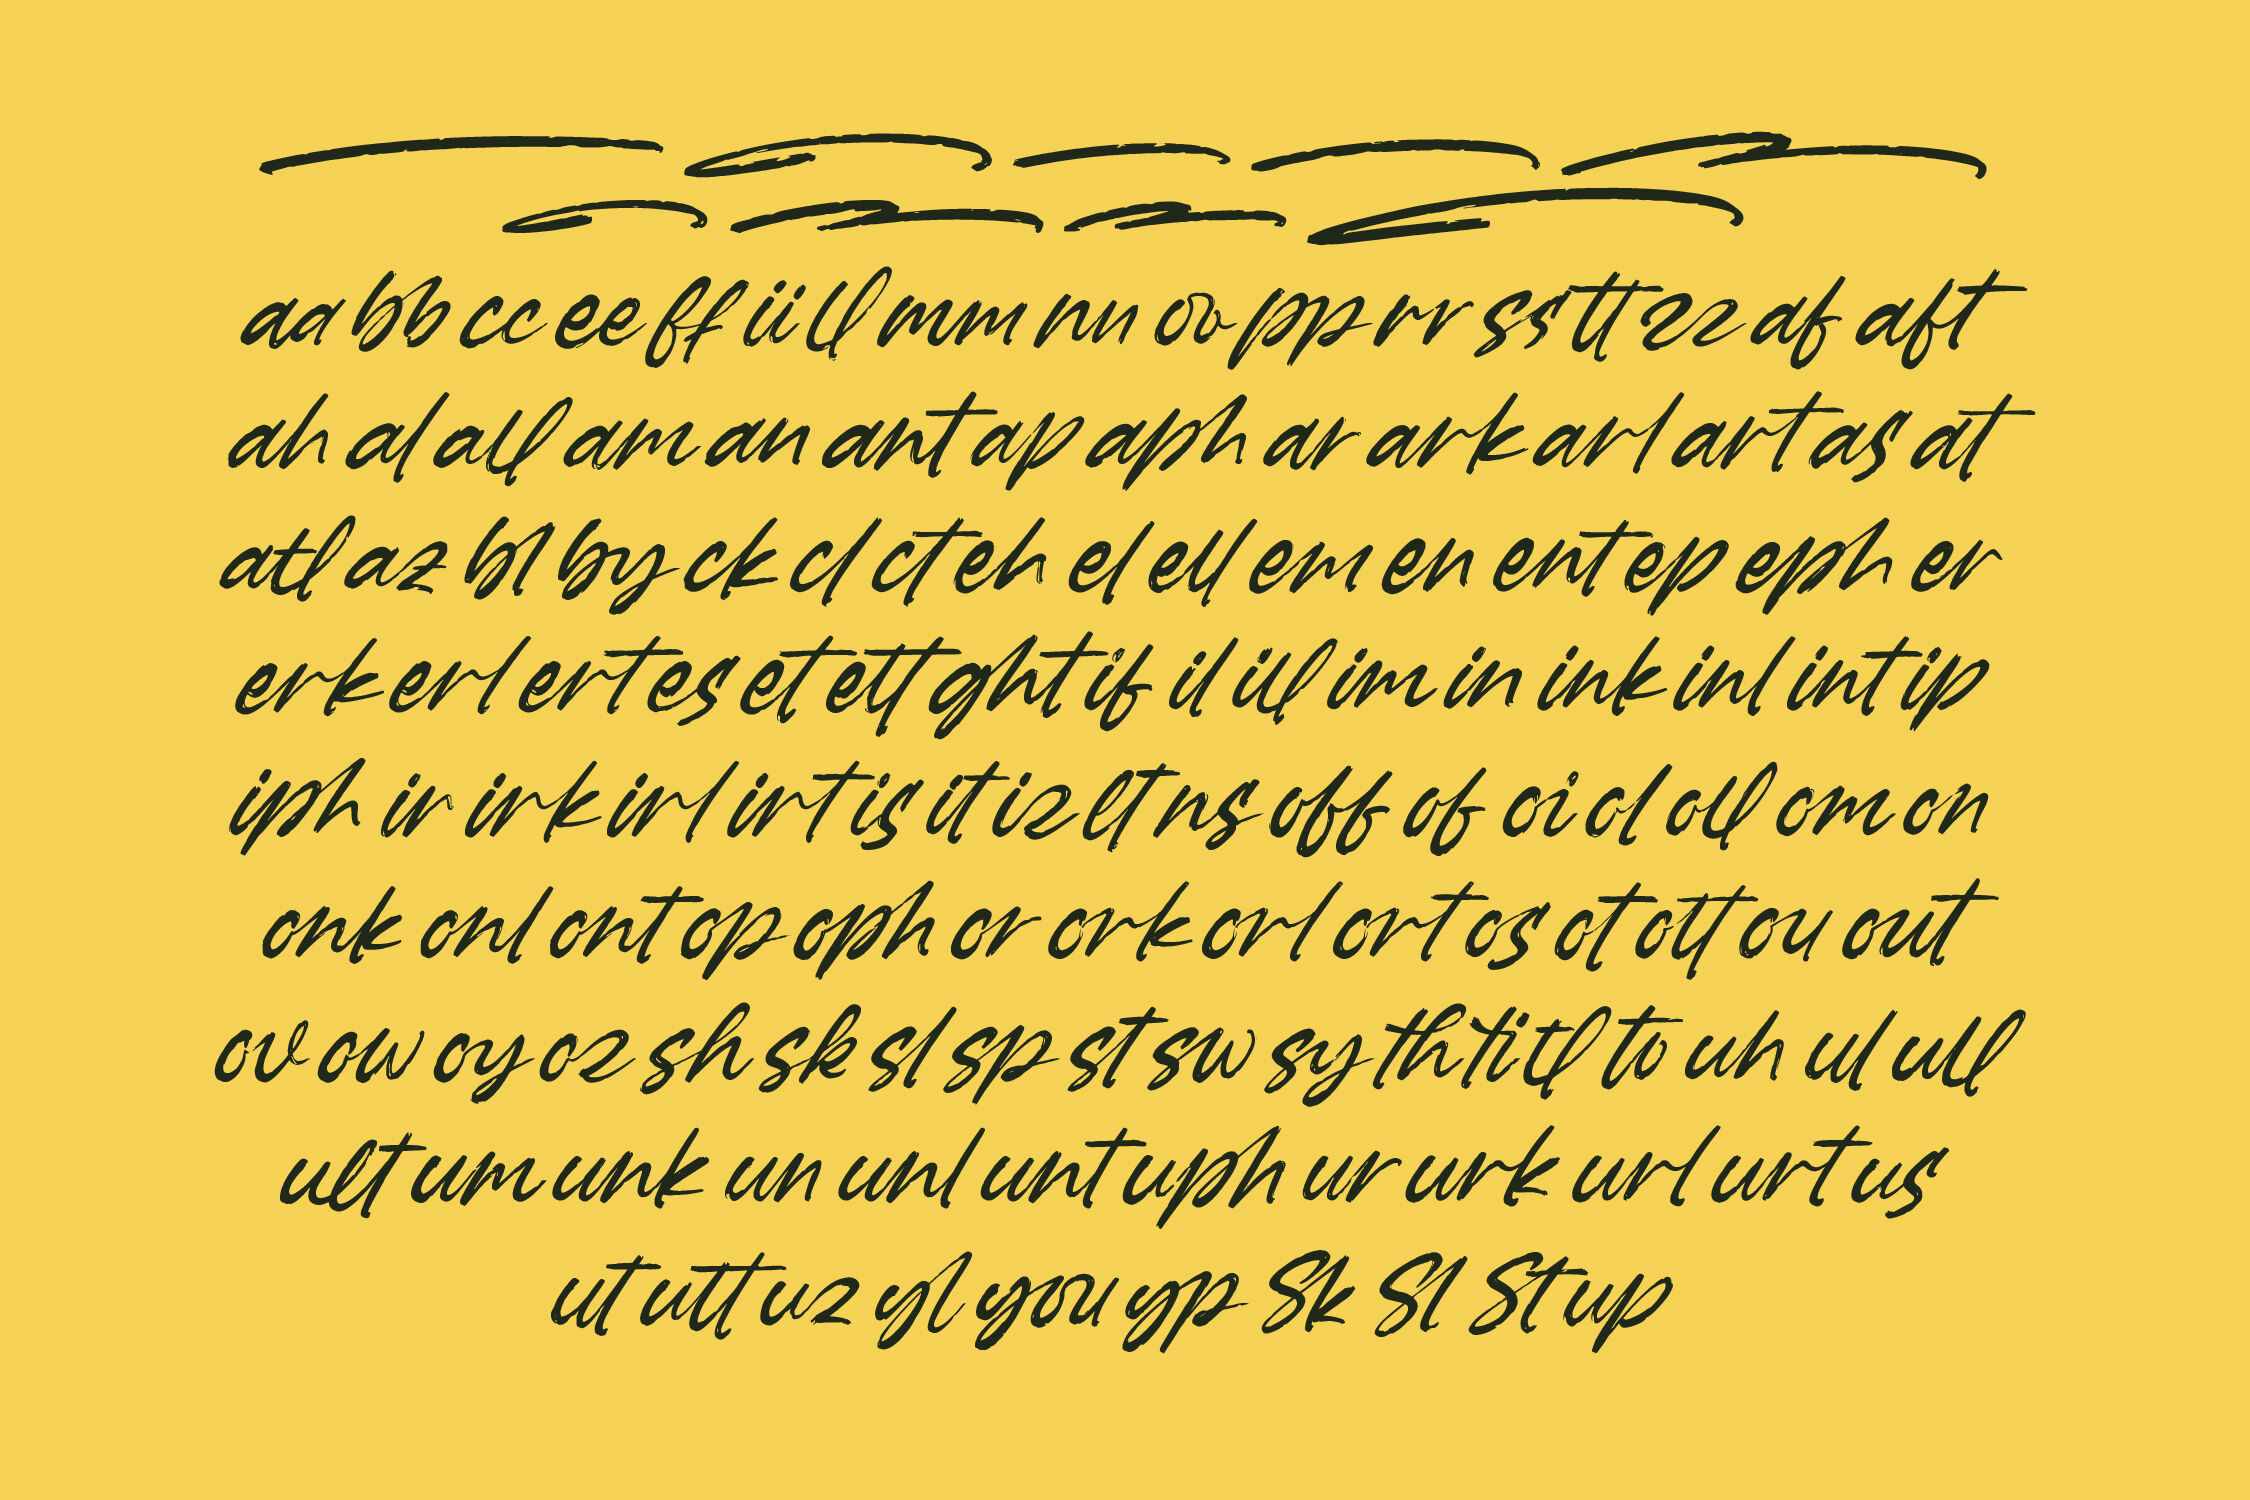 aa bb cc ee ff ii ll mm nn oo pp rr ss tt zz af aft
ah al all am an ant ap aph ar ark arl art as at
atl az bl by ck cl ct eh el ell em en ent ep eph er
erk erl ert es et ett ght if il ill im in ink inl int ip
iph ir irk irl irt is it iz lt ns off of oi ol oll om on
onk onl ont op oph or ork orl ort os ot ott ou out
ov ow oy oz sh sk sl sp st sw sy th ti tl to uh ul ull
ult um unk un unl unt uph ur urk url urt us
ut utt uz yl you yp Sk Sl St up